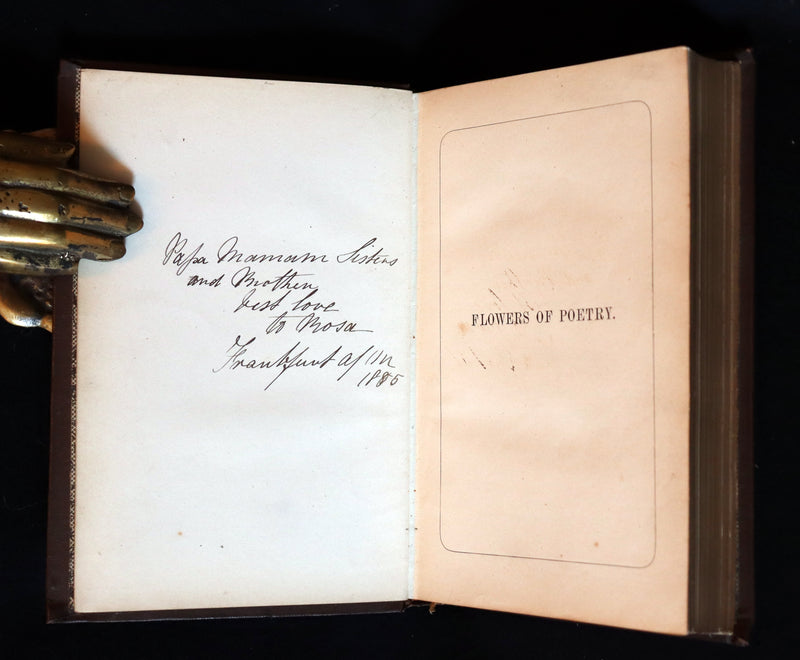 Papa Mamam Sisters
and Brother
best love
to Rosa
Frankfurt a/m
1885
FLOWERS OF POETRY.